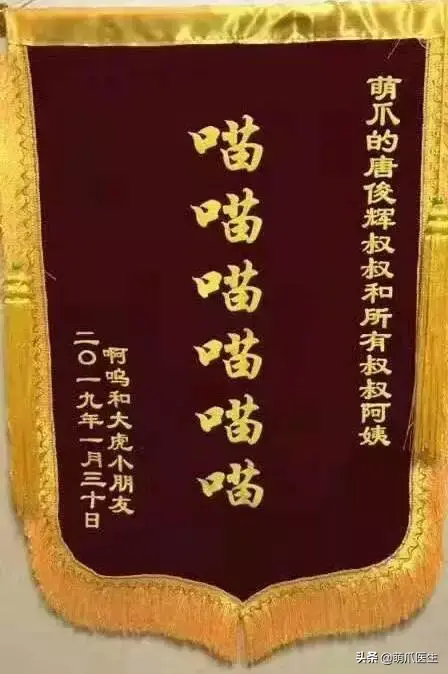 萌爪的唐俊辉叔叔和所有叔叔阿姨
喵喵喵喵喵喵
啊呜和大虎小朋友
二〇一九年一月三十日
头条 @萌爪医生